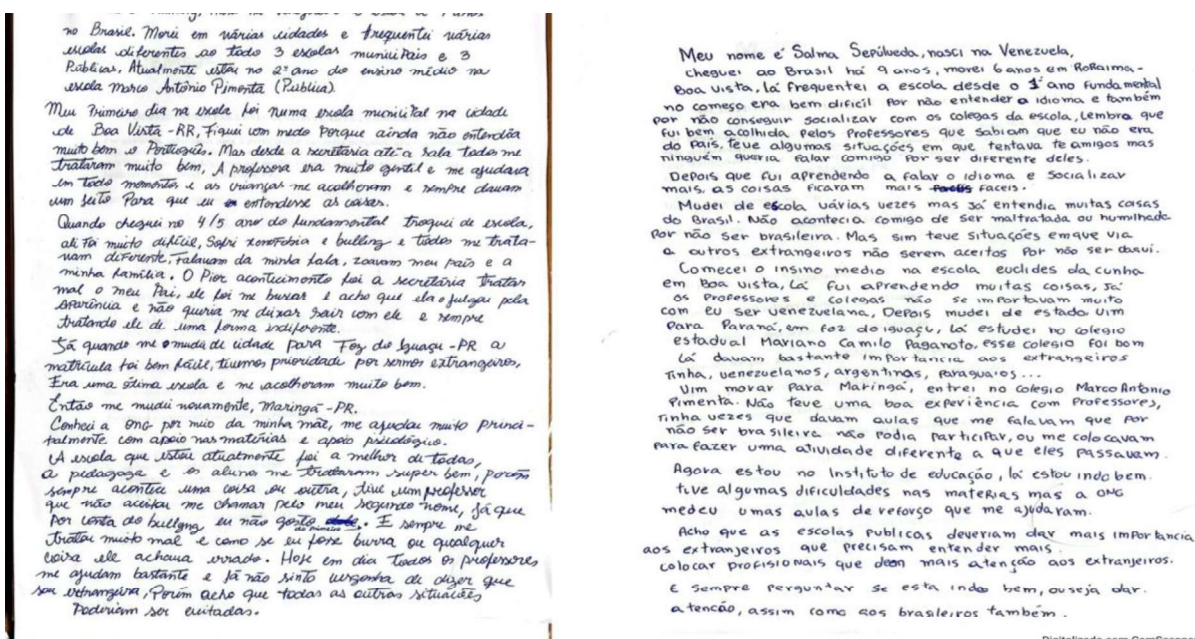 no Brasil. Morei em várias cidades e frequentei várias
escolas diferentes ao todo 3 escolas municiPais e 3
Públicas, Atualmente estou no 2º ano do ensino médio na
escola Marco Antônio Pimenta (Publica).
Meu Primeiro dia na escola foi numa escola municiPal na cidade
de Boa Vista-RR, Fiquei com medo Porque ainda não entendia
muito bem o Português. Mas desde a secretária até a sala todos me
trataram muito bem, A professora era muito gentil e me ajudava
em todo momentos e as crianças me acolheram e sempre davam
um jeito Para que eu entendesse as coisas.
Quando cheguei no 4/5 ano do fundamental troquei de escola,
ali foi muito difícil, Sofri xenofobia e bulling e todos me trata-
vam diferente, Falavam da minha fala, zoavam meu país e a
minha família. O Pior acontecimento foi a secretária tratar
mal o meu Pai, ele foi me buscar e acho que ela o julgou pela
aparência e não queria me deixar sair com ele e sempre
tratando ele de uma forma indiferente.
Já quando me mudei de cidade para Foz do Iguaçu-PR a
matrícula foi bem fácil, tivemos prioridade por sermos extrangeiros,
Era uma ótima escola e me acolheram muito bem.
Então me mudei novamente, Maringá-PR.
Conheci a ONG por meio da minha mãe, me ajudou muito princi-
palmente com apoio nas matérias e apoio psicológico.
A escola que estou atualmente foi a melhor de todas,
a pedagoga e os alunos me trataram super bem, porém
sempre acontece uma coisa ou outra, tive um professor
que não aceitou me chamar pelo meu segundo nome, já que
por conta do bullyng eu não gosto do primeiro. E sempre me
tratou muito mal e como se eu fosse burra ou qualquer
coisa ele achava errado. Hoje em dia todos os professores
me ajudam bastante e já não sinto vergonha de dizer que
sou extrangeira, Porém acho que todas as outras situações
Poderiam ser evitadas.
Meu nome é Salma Sepúlveda, nasci na Venezuela,
cheguei ao Brasil há 9 anos, morei 6 anos em Roraima-
Boa vista, lá frequentei a escola desde o 1º ano Fundamental
no começo era bem difícil Por não entender a idioma e também
por não conseguir socializar com os colegas da escola, Lembra que
fui bem acolhida pelos Professores que sabiam que eu não era
do país, teve algumas situações em que tentava te amigos mas
ninguém queria falar comigo por ser diferente deles.
Depois que fui aprendendo a falar o idioma e Socializar
mais, as coisas ficaram mais faceis.
Mudei de escola várias vezes mas Já entendia muitas coisas
do Brasil. Não acontecia comigo de ser maltratada ou humilhada
Por não ser brasileira. Mas sim teve situações em que via
a outros extrangeiros não serem aceitos Por não ser daqui.
Comecei o insino medio na escola euclides da cunha
em Boa vista, Lá fui aprendendo muitas coisas, Já
os Professores e colegas não se importavam muito
com eu ser venezuelana, Depois mudei de estado. vim
Para Paraná, em foz do iguaçu, lá estudei no colegio
estadual Mariano Camilo Paganoto, esse colegio foi bom
Lá davam bastante importancia aos extrangeiros
Tinha, venezuelanos, argentinas, paraguaios...
Vim morar Para Maringá, entrei no colegio Marco Antonio
Pimenta. Não teve uma boa experiência com Professores,
Tinha vezes que davam aulas que me falavam que por
não ser brasileira não podia participar, ou me colocavam
para fazer uma atividade diferente a que eles passavam.
Agora estou no Instituto de educação, lá estou indo bem.
tive algumas dificuldades nas materias mas a ONG
medeu umas aulas de reforço que me ajudaram.
Acho que as escolas publicas deveriam dar mais importancia
aos extranjeiros que precisam entender mais.
colocar profisionais que deen mais atenção aos extranjeiros.
E sempre perguntar se esta indo bem, ouseja dar.
atencão, assim como aos brasileiros também.